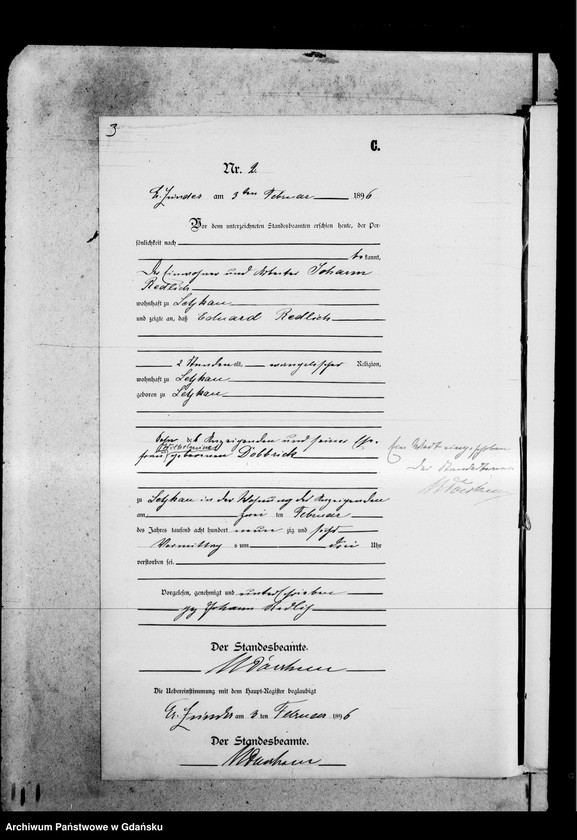 3
C.
Nr. 2.
Gr. Zünder am 3ten Februar 1896
Vor dem unterzeichneten Standesbeamten erschien heute, der Per-
sönlichkeit nach
be kannt,
der Einwohner und Arbeiter Johann
Redlich
wohnhaft zu Letzkau
und zeigte an, daß Eduard Redlich
2 Stunden alt, evangelischer Religion,
wohnhaft zu Letzkau
geboren zu Letzkau
Sohn des Anzeigenden und seiner Ehe-
Wilhelmine
frau geborenen Dobbrick
Ein Wort eingeschoben
Der Standesbeamte
zu Letzkau in der Wohnung des Anzeigenden
am zwei ten Februar
des Jahres tausend acht hundert neun zig und sechs
Vormittag s um drei Uhr
verstorben sei.
Vorgelesen, genehmigt und unterschrieben
gez Johann Redlich
Der Standesbeamte.
Die Uebereinstimmung mit dem Haupt-Register beglaubigt
Gr. Zünder am 3. ten Februar 1896
Der Standesbeamte.
Archiwum Państwowe w Gdańsku